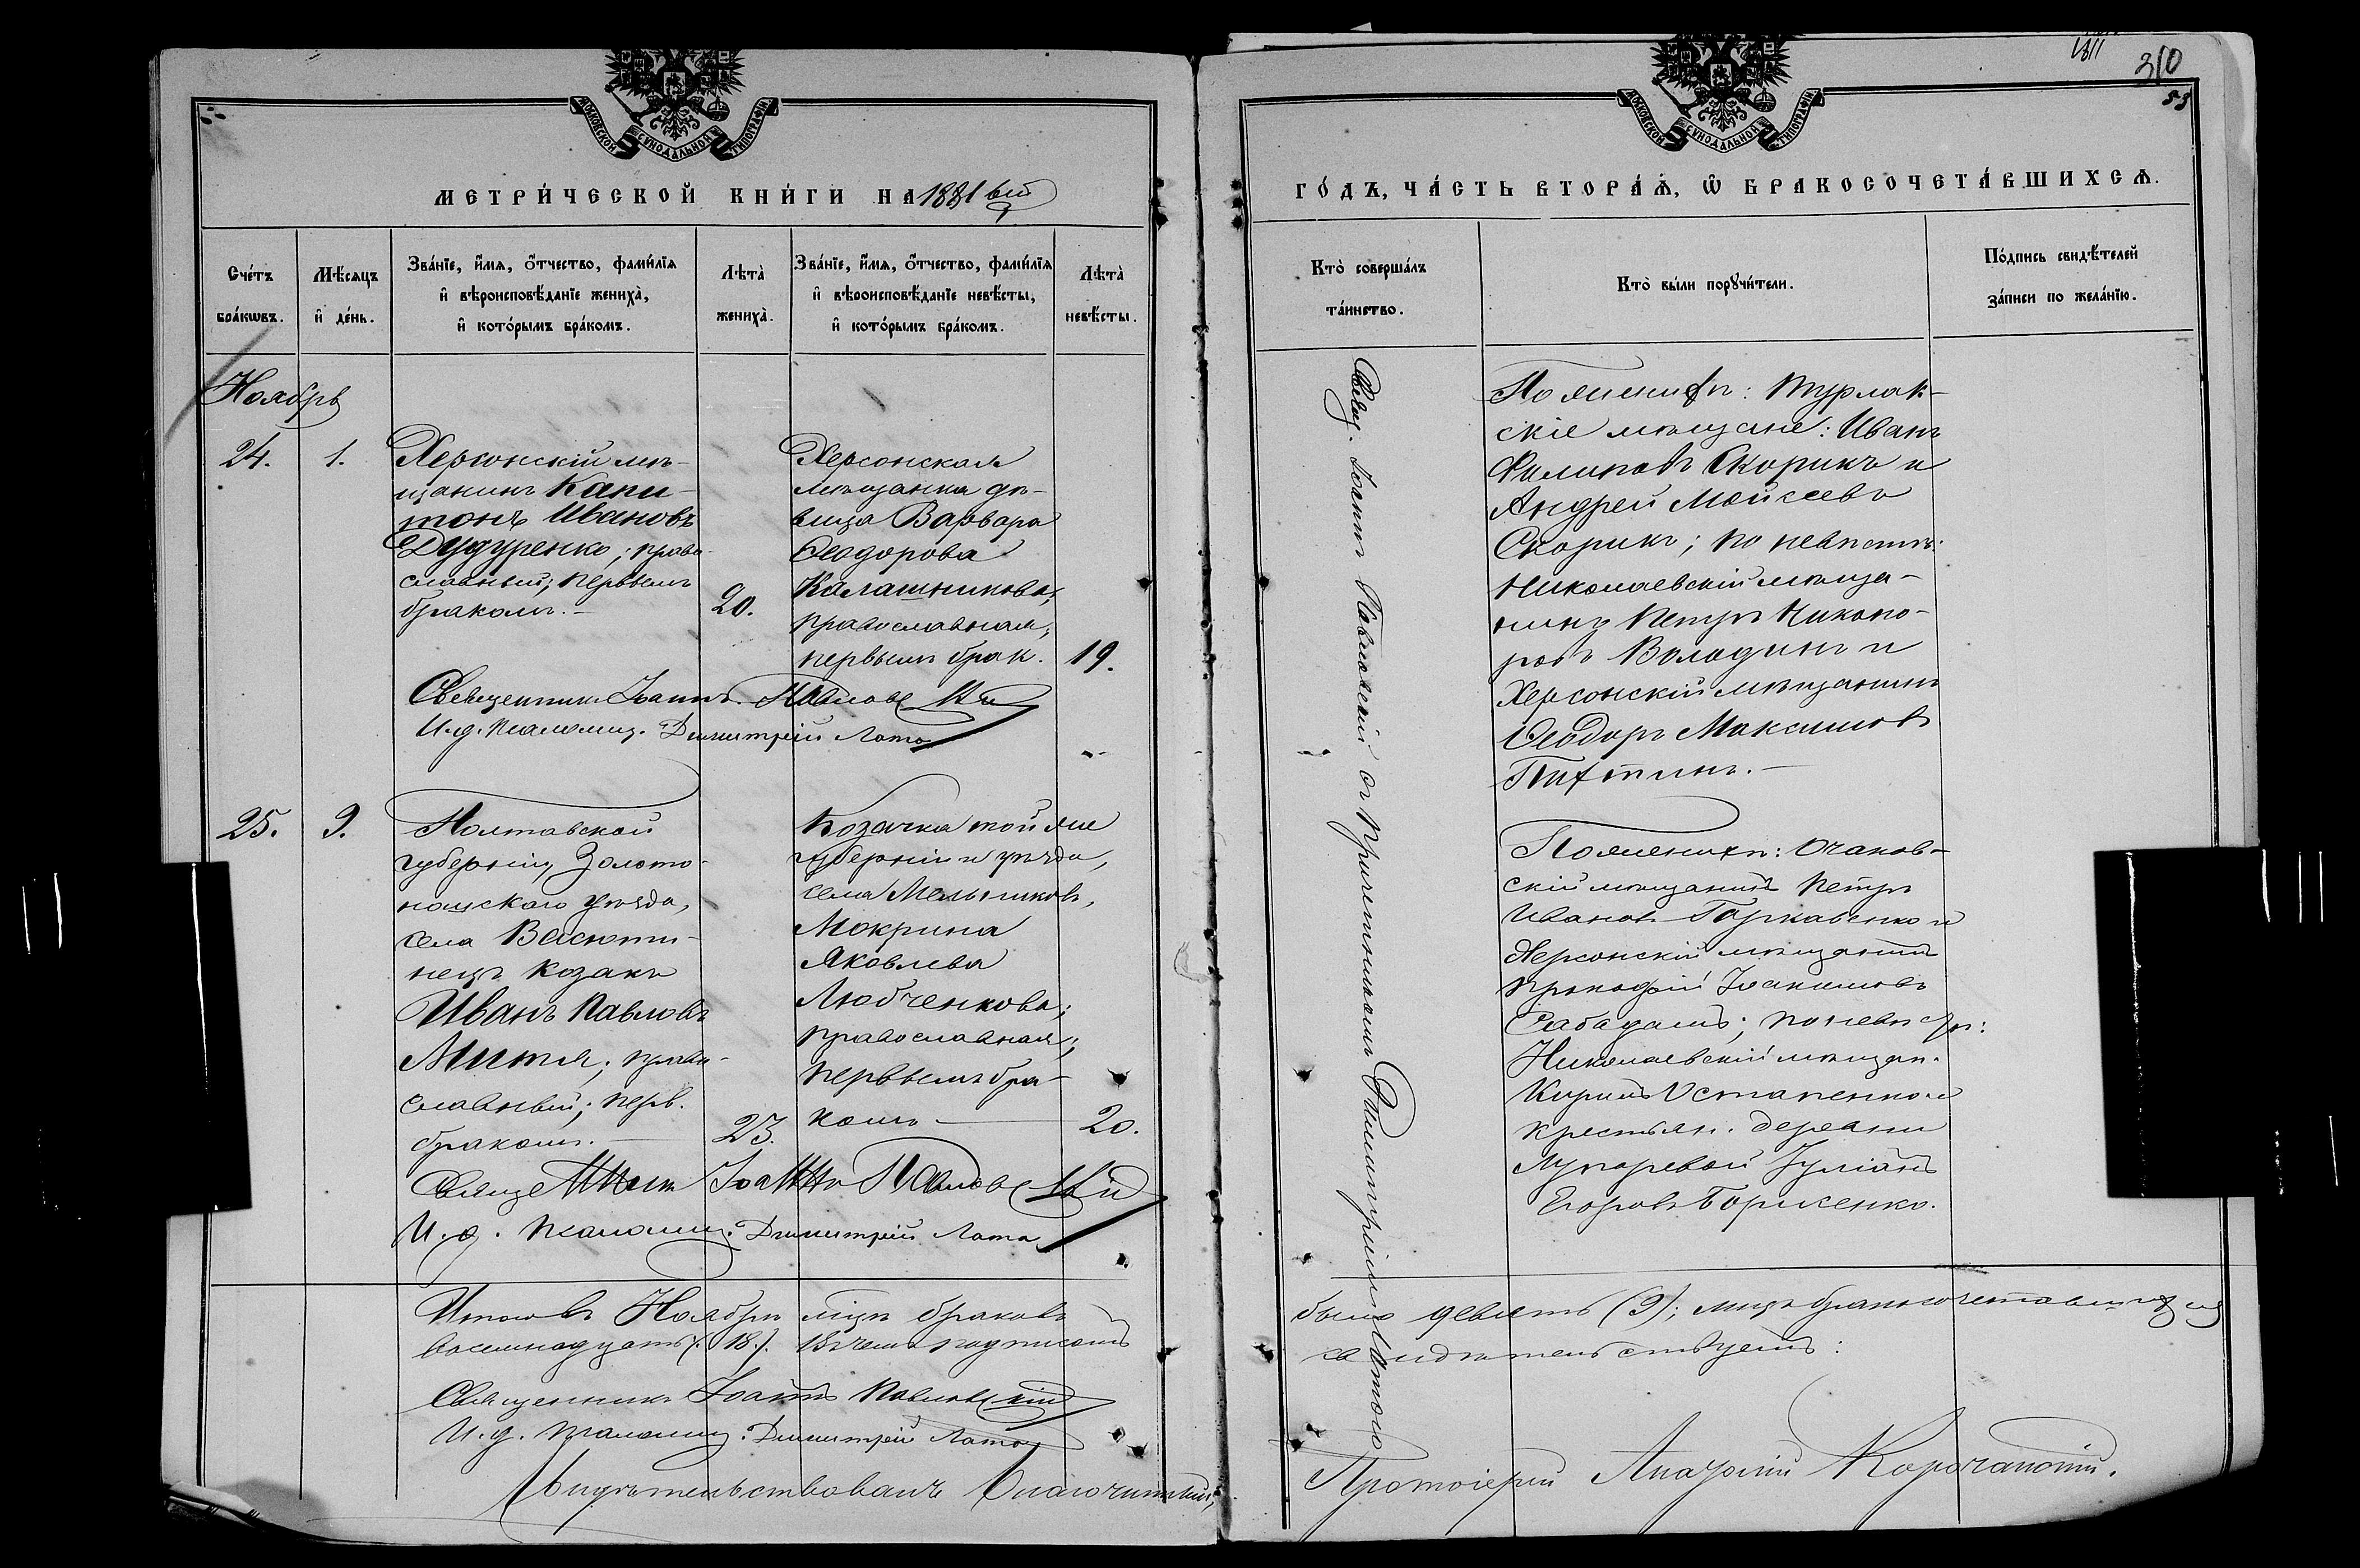 МОСКОВСКОЙ СѴНОДАЛЬНОЙ ТИПОГРАФІИ
МЕТРИ́ЧЕСКОЙ КНИ́ГИ НА 1881 вый
Сче́тъ бра́кѡвъ.
Мѣ́сяцъ и҆ де́нь.
Зва́нїе, и҆́мѧ, ѻ҆́тчество, фами́лїѧ
и҆ вѣроисповѣ́данїе жениха̀,
и҆ кото́рымъ бра́комъ.
Лѣта̀ жениха̀.
Зва́нїе, и҆́мѧ, ѻ҆́тчество, фами́лїѧ
и҆ вѣроисповѣ́данїе невѣ́сты,
и҆ кото́рымъ бра́комъ.
Лѣта̀ невѣ́сты.
Ноябрь
24.
1.
Херсонскій мѣ-
щанинъ Капи-
тонъ Ивановъ
Дудуренко; право-
славный; первымъ
бракомъ.
20.
Херсонская
мѣщанка дѣ-
вица Варвара
Ѳеодорова
Калашникова;
православная;
первымъ брак.
19.
Священникъ Іоаннъ Павловскій
И. д. псаломщ. Димитрій Лата
25.
9.
Полтавской
губерніи, Золото-
ношскаго уѣзда,
села Васюти-
нецъ козакъ
Иванъ Павловъ
Митя; право-
славный; перв.
бракомъ.
23.
Козачка той же
губерніи и уѣзда,
села Мельниковъ,
Мокрина
Яковлева
Любченкова;
православная;
первымъ бра-
комъ
20.
Священникъ Іоаннъ Павловскій
И. д. псаломщ. Димитрій Лата
Итого въ Ноябрѣ мцѣ браковъ
восемнадцать (18). Въ чемъ подписомъ
Священникъ Іоаннъ Павловскій
И. д. псаломщ. Димитрій Лата
Свидѣтельствовалъ Благочинный,
310
МОСКОВСКОЙ СѴНОДАЛЬНОЙ ТИПОГРАФІИ
ГО́ДЪ, ЧА́СТЬ ВТОРА́Ѧ, Ѡ҆ БРАКОСОЧЕТА́ВШИХСѦ.
Кто̀ соверша́лъ
та́инство.
Кто̀ бы́ли порꙋчи́тели.
По́дпись свидѣ́телей
за́писи по жела́нїю.
Свящ. Іоаннъ Павловскій съ причетникомъ Димитріемъ Латою
По женихѣ: турлак-
скіе мѣщане: Иванъ
Филиповъ Скорикъ и
Андрей Мойсеевъ
Скорикъ; по невѣстѣ:
Николаевскій мѣща-
нинъ Петръ Никано-
ровъ Володинъ и
Херсонскій мѣщанинъ
Ѳеодоръ Максимовъ
Пихтинъ.
По женихѣ: Очаков-
скій мѣщанинъ Петръ
Ивановъ Горкавенко и
Херсонскій мѣщанинъ
Прокофій Іоакимовъ
по невѣстѣ:
Николаевскій мѣщан.
Кирилъ Остапенко и
крестьян. деревни
Лупаревой Іуліанъ
Егоровъ Борисенко.
было девять (9); лицъ бракосочетавшихся
свидѣтельствуетъ:
Протоіерей